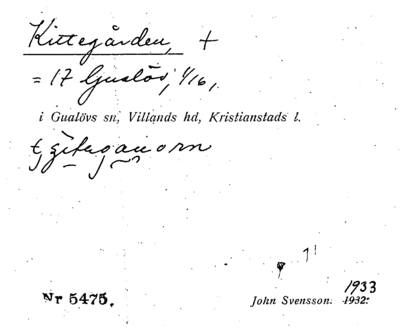 Kittegården, +
= 17 Gualöv, 1/16,
i Gualövs sn, Villands hd, Kristianstads l.
Nr 5475.
John Svensson. 1933 1932.